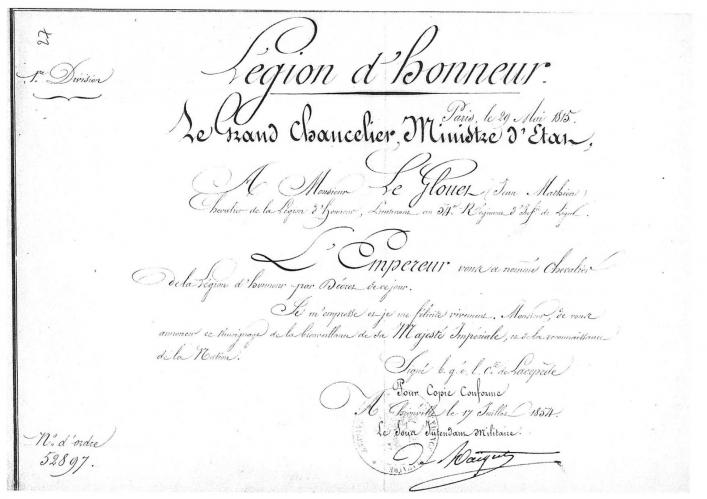 27
1re Division
Légion d'honneur.
Paris, le 29 Mai 1815.
Le Grand Chancelier, Ministre d'Etat,
A Monsieur Le Glouet (Jean Mathieu)
Chevalier de la Légion d'honneur, Lieutenant au 54e Régiment d'Infie de Ligne.
L'Empereur vous a nommé Chevalier
de la Légion d'honneur par Décret de ce jour.
Je m'empresse et je me félicite vivement, Monsieur, de vous
annoncer ce témoignage de la bienveillance de Sa Majesté Impériale, et de la reconnaissance
de la Nation.
Signé b. g. é. l. Cte de Lacepède
Pour Copie Conforme
A le 17 Juillet 1854.
Le Sous Intendant Militaire
No d'ordre
52897.